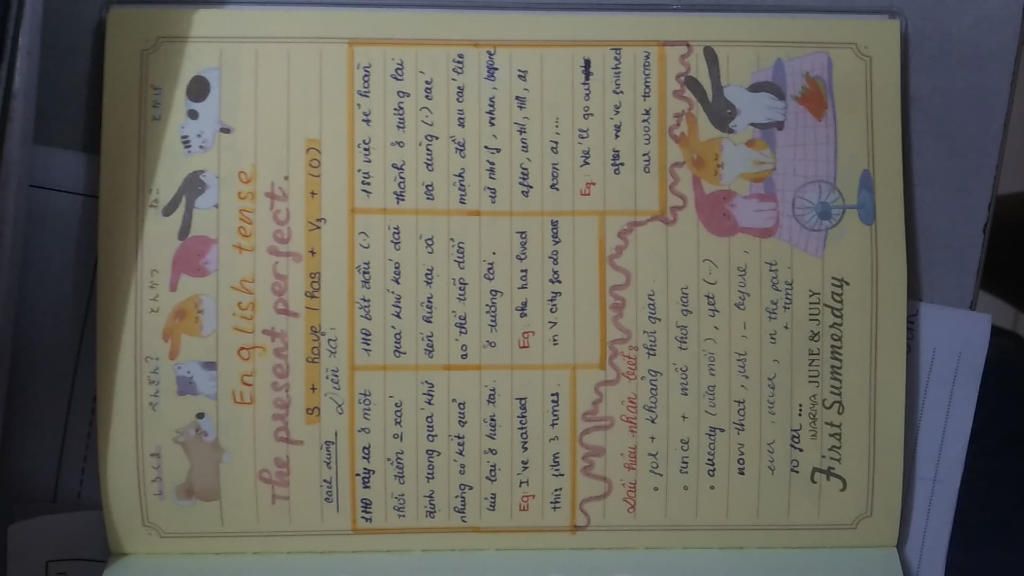 しろくま ぺんぎん? とんかつ ねこ とかげ
English tense
The present perfect.
S + have / has + V3 + (O)
cách dùng
Diễn tả:
1HĐ xảy ra ở một
thời điểm ko xác
định trong quá khứ
nhưng có kết quả
lưu lại ở hiện tại.
Eg: I've watched
this film 3 times.
1HĐ bắt đầu (.)
quá khứ kéo dài
đến hiện tại và
có thể tiếp diễn
ở tương lai.
Eg: she has lived
in V. city for ... years
1 sự việc sẽ hoàn
thành ở tương lai
và dùng (.) các
mệnh đề sau các liên
từ như if, when, before
after, until, till, as
soon as, ...
Eg: We'll go out
after we've finished
our work tomorrow
Dấu hiệu nhận biết:
• for + khoảng thời gian.
• since + mốc thời gian
• already (vừa mới), yet (...)
now that, just, - before,
ever, never, in the past
+ time.
so far...
INARIWA JUNE & JULY
First Summerday